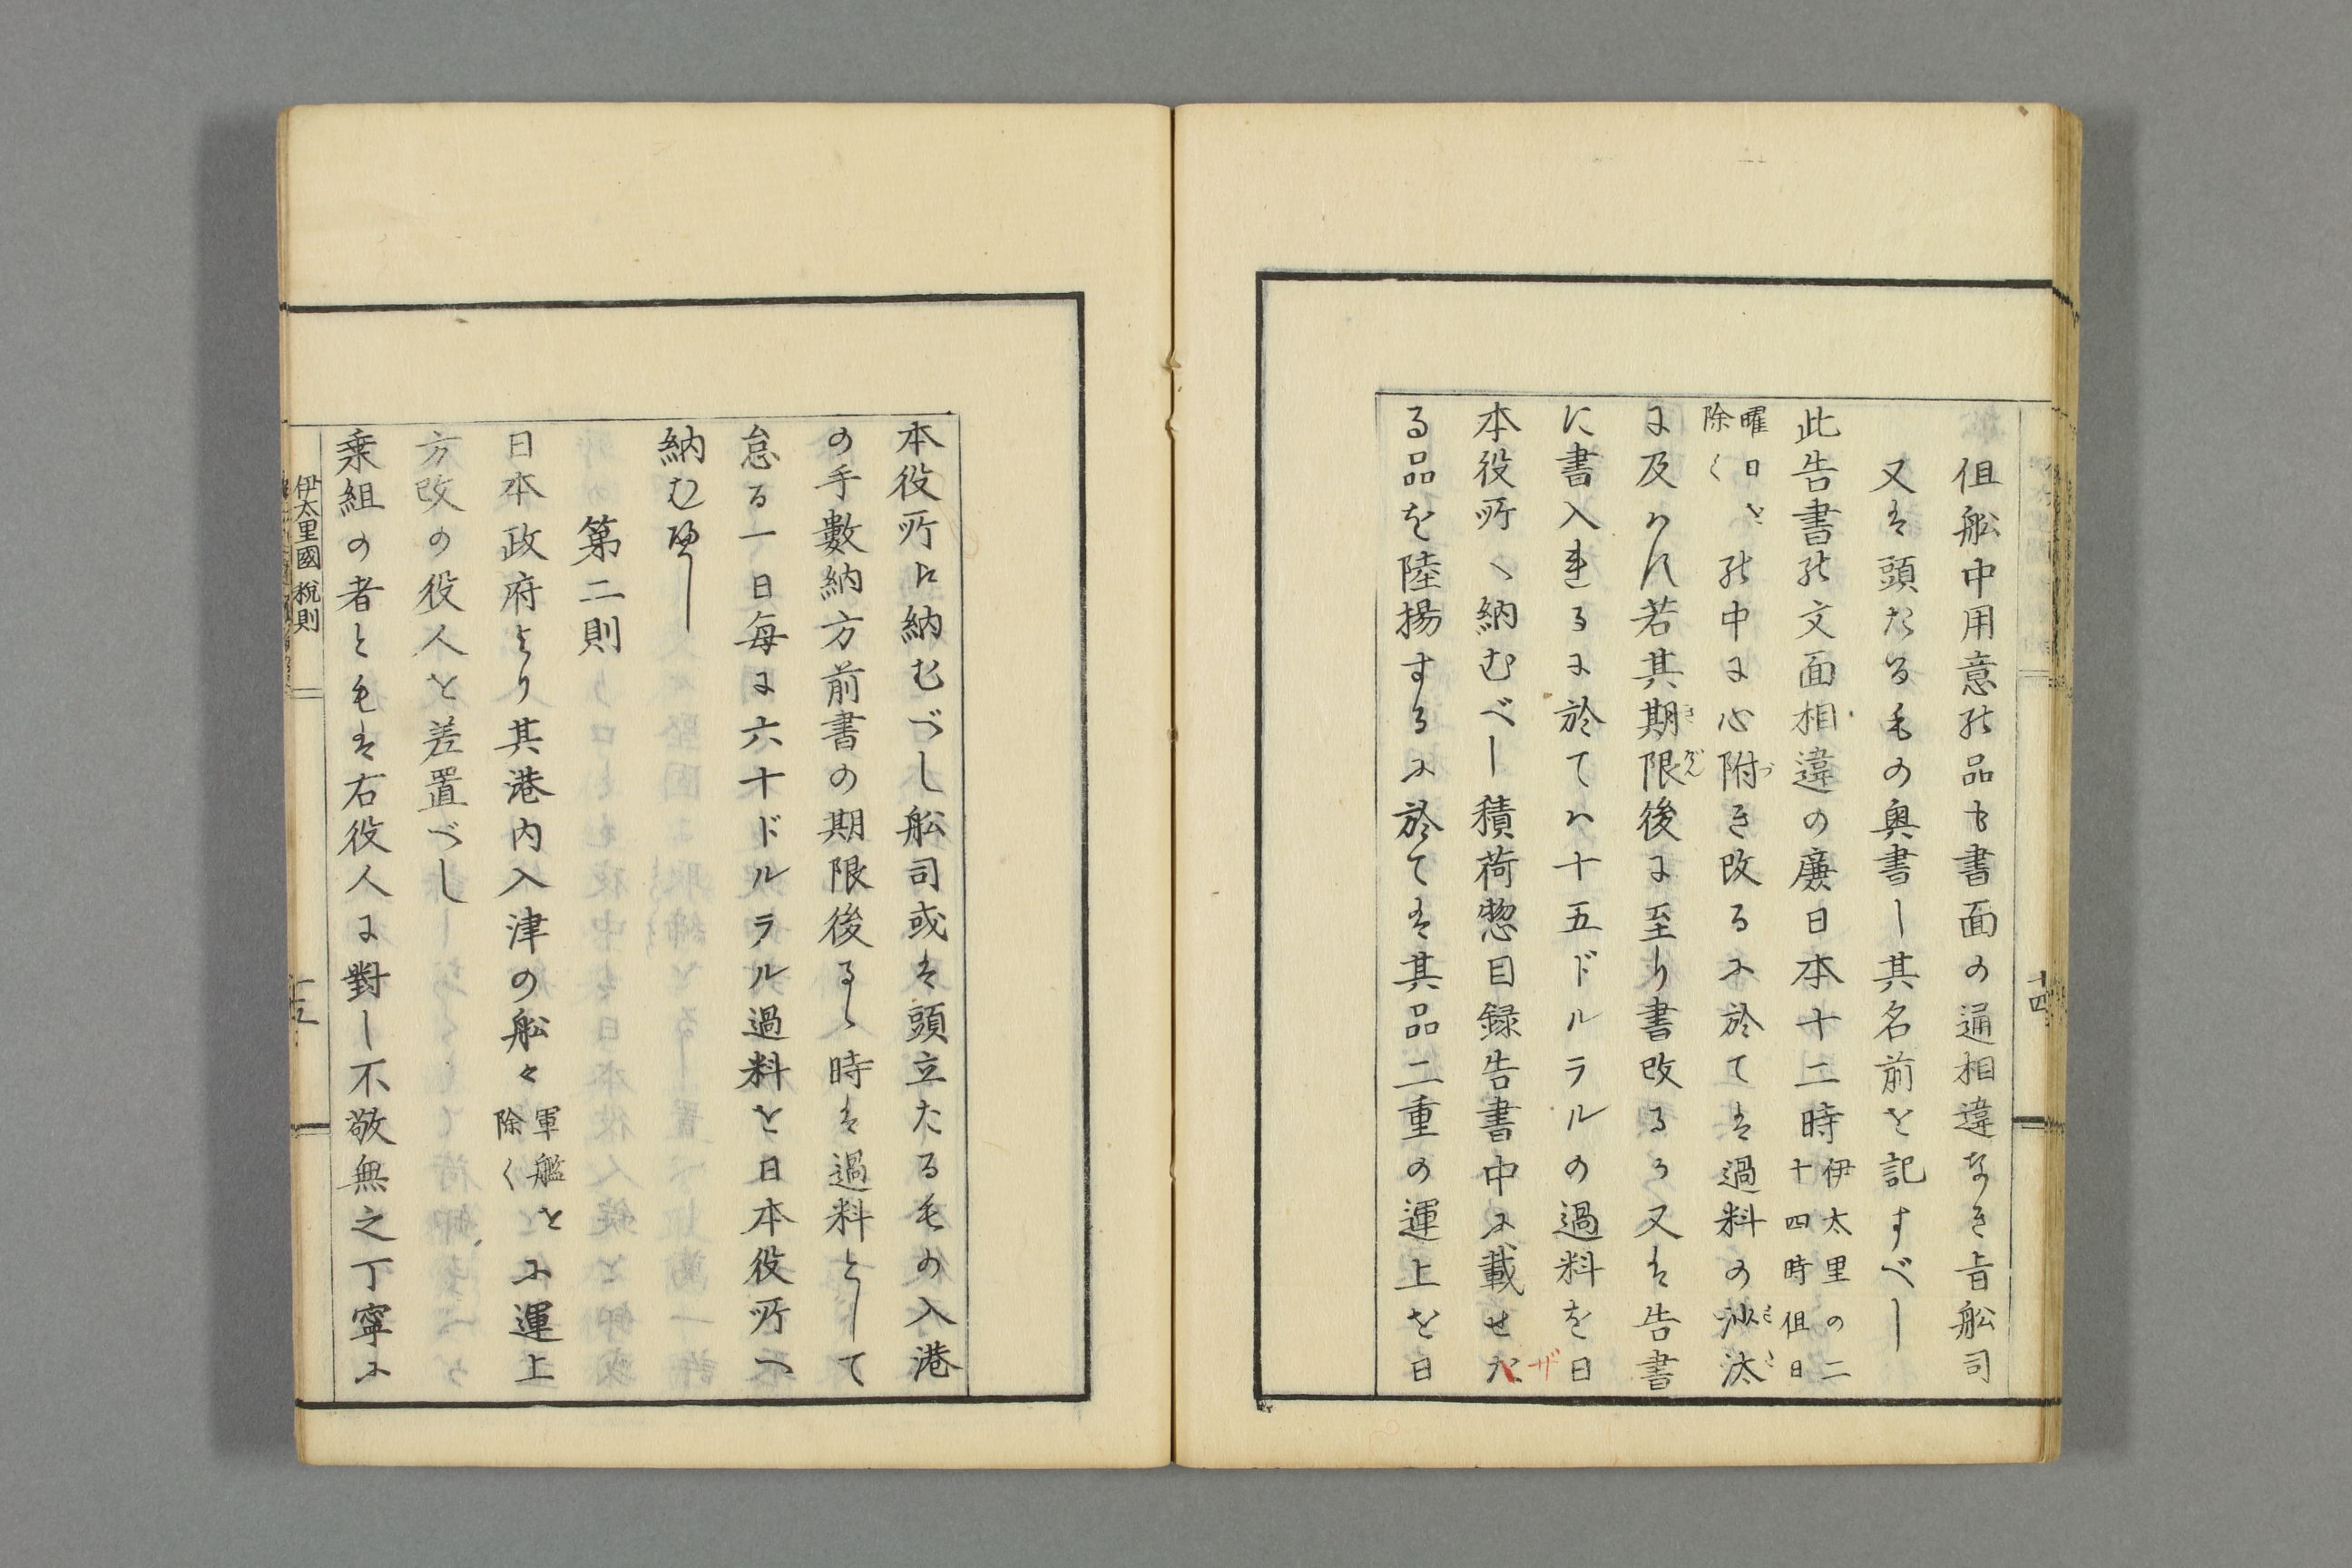 但舩中用意の品も書面の通相違なき旨舩司
又は頭たるもの奥書し其名前を記すべし
此告書の文面相違の廉日本十二時伊太里の二十四時但日
曜日を除くの中に心附き改るに於ては過料の沙汰
に及はす若其期限後に至り書改るか又は告書
に書入れるに於てハ十五ドルラルの過料を日
本役所へ納むべし積荷惣目録告書中に載せた
ザ
る品を陸揚するに於ては其品二重の運上を日
十四
本役所に納むべし舩司或は頭立たるもの入港
の手數納方前書の期限後るゝ時は過料として
怠る一日毎に六十ドルラル過料を日本役所へ
納むべし
第二則
日本政府より其港内入津の舩々軍艦を除くに運上
方改の役人を差置べし
乗組の者ともは右役人に對し不敬無之丁寧に
伊太里國 税則
十五